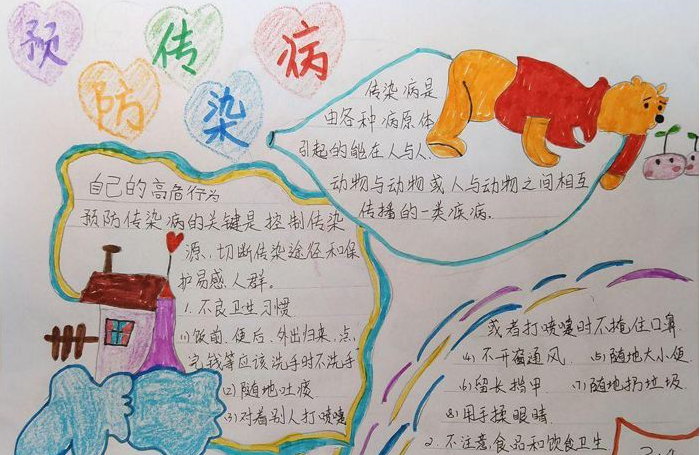 预防传染病
传染病是
由各种病原体
引起的能在人与人、
动物与动物或人与动物之间相互
传播的一类疾病.
自己的高危行为
预防传染病的关键是控制传染
源、切断传染途径和保
护易感人群。
1.不良卫生习惯
(1)饭前、便后、外出归来、点
完钱等应该洗手时不洗手
(2)随地吐痰
(3)对着别人打喷嚏
或者打喷嚏时不掩住口鼻
(4)不开窗通风 (5)随地大小便
(6)留长指甲 (7)随地扔垃圾
(8)用手揉眼睛
2.不注意食品和饮食卫生